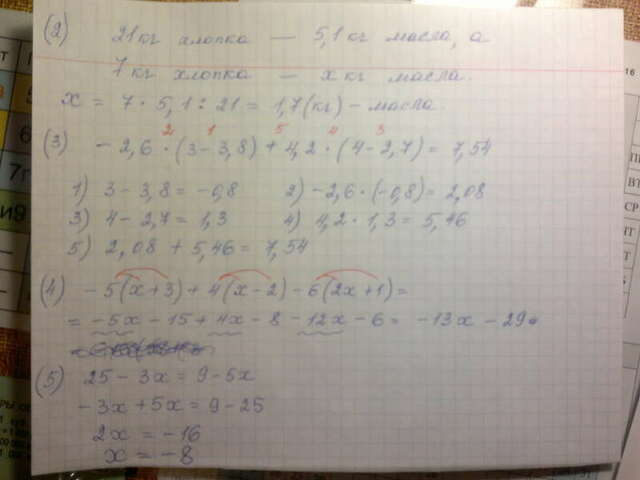 (2) 21 кг хлопка — 5,1 кг масла, а
7 кг хлопка — x кг масла.
x = 7 · 5,1 : 21 = 1,7 (кг) – масла.
2 1 5 4 3
(3) - 2,6 · (3 - 3,8) + 4,2 · (4 - 2,7) = 7,54
1) 3 - 3,8 = -0,8 2) -2,6 · (-0,8) = 2,08
3) 4 - 2,7 = 1,3 4) 4,2 · 1,3 = 5,46
5) 2,08 + 5,46 = 7,54
(4) - 5(x+3) + 4(x-2) - 6(2x+1) =
= -5x - 15 + 4x - 8 - 12x - 6 = -13x - 29.
(5) 25 - 3x = 9 - 5x
-3x + 5x = 9 - 25
2x = -16
x = -8